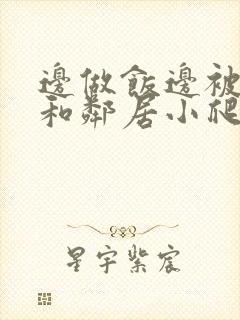 邊做飯邊被
和鄰居小爬
星宇紫宸